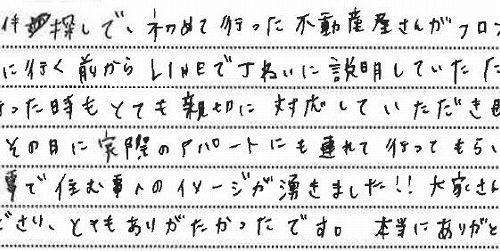 件探しで、初めて行った不動産屋さんがフロン
に行く前からLINEで丁ねいに説明していただ
った時もとても親切に対応していただき
その日に実際のアパートにも連れて行ってもらい
事で住む事へのイメージが湧きました!!大家さん
ださい、とてもありがたかったです。本当にありがと